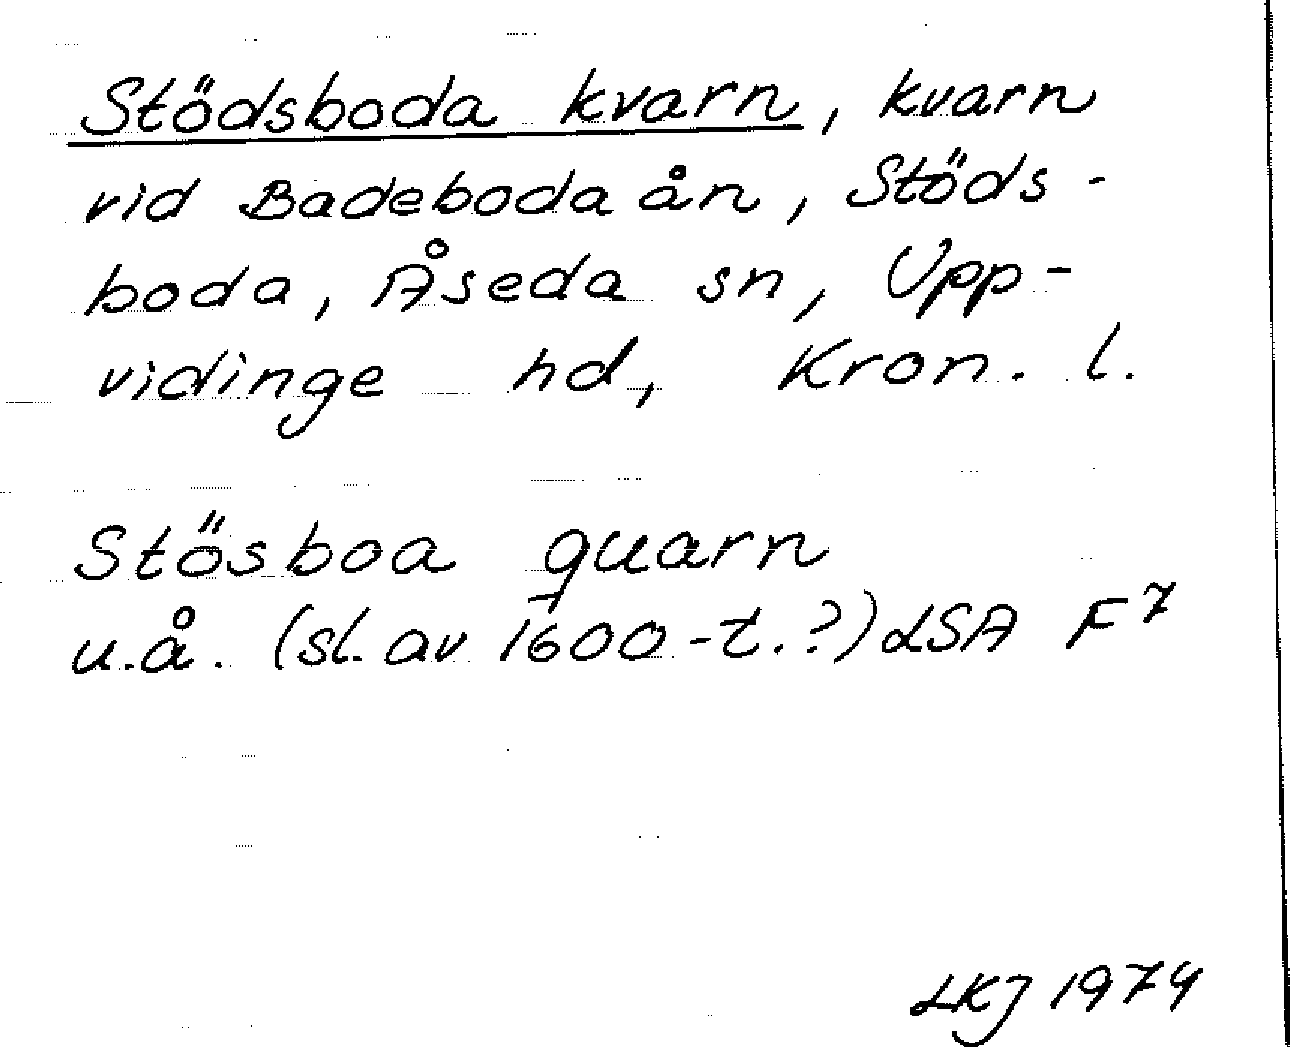 Stödsboda kvarn, kvarn
vid Badebodaån, Stöds-
boda, Åseda sn, Upp-
vidinge hd, Kron. l.
Stösboa quarn
u.å. (sl. av 1600-t.?) LSA F7
LKJ 1974